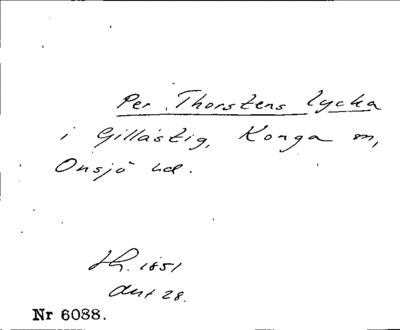 Per Thorstens lycka
i Gillastig, Konga sn,
Onsjö hd.
Lh. 1851
Ant 28.
Nr 6088.